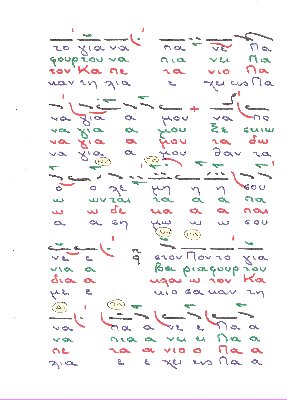 το για να πα νε Πα
φουρ του να πια νει Πα
τον Κα πε τα νιο Πα
καν τη λια ε χει ως Πα
να γι α α μου να πο
να γι α α μου ξε σκιω
να γι α α μου τα δω
να γι α α μου θαν τα
ο ο λε μη η η σου
ω ω νται τα α α πα
ω ω δε κα α α παι
α α ση μω ω ω σου
νε ε στον Πον το για
νια α βα ρια φουρ του
δια α κλαι ω τον Κα
με ε κιο σα καν τη
να πα α νε ε Πα α
να πια α νει ει Πα α
πε τα α νιο ο Πα α
λια ε ε χει ως Πα α